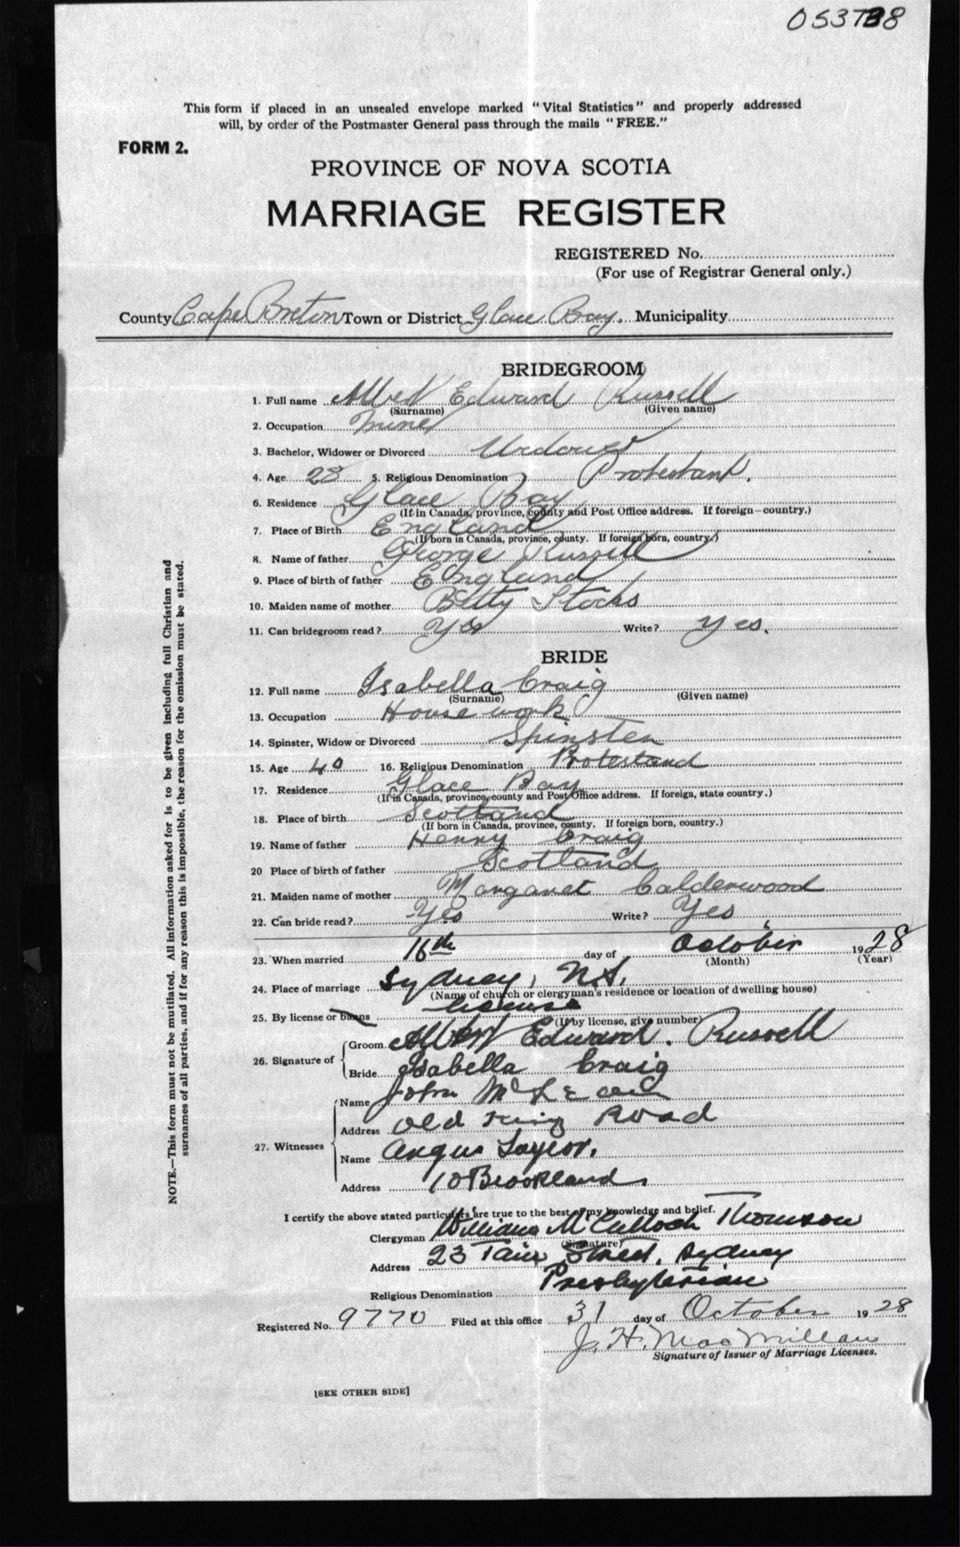 053788
This form if placed in an unsealed envelope marked "Vital Statistics" and properly addressed
will, by order of the Postmaster General pass through the mails "FREE."
FORM 2.
PROVINCE OF NOVA SCOTIA
MARRIAGE REGISTER
REGISTERED No.
(For use of Registrar General only.)
County Cape Breton Town or District Glace Bay. Municipality
BRIDEGROOM
1. Full name Albert Edward Russell
(Surname) (Given name)
2. Occupation Miner
3. Bachelor, Widower or Divorced Widower
4. Age 28 5. Religious Denomination Protestant.
6. Residence Glace Bay
(If in Canada, province, county and Post Office address. If foreign—country.)
7. Place of Birth England
(If born in Canada, province, county. If foreign born, country.)
8. Name of father George Russell
9. Place of birth of father England
10. Maiden name of mother Betty Stocks
11. Can bridegroom read? Yes Write? Yes.
BRIDE
12. Full name Isabella Craig
(Surname) (Given name)
13. Occupation House work
14. Spinster, Widow or Divorced Spinster
15. Age 40 16. Religious Denomination Protestand
17. Residence Glace Bay
(If in Canada, province, county and Post Office address. If foreign, state country.)
18. Place of birth Scotland
(If born in Canada, province, county. If foreign born, country.)
19. Name of father Henry Craig
20 Place of birth of father Scotland
21. Maiden name of mother Margaret Calderwood
22. Can bride read? Yes Write? Yes
23. When married 16th day of October 1928
(Month) (Year)
24. Place of marriage Sydney, N.S.
(Name of church or clergyman's residence or location of dwelling house)
25. By license or banns License
(If by license, give number)
26. Signature of Groom Albert Edward Russell
Bride Isabella Craig
27. Witnesses Name John McLean
Address Old Road
Name Angus Taylor.
Address 10 Brookland
I certify the above stated particulars are true to the best of my knowledge and belief.
Clergyman William McCulloch Thomson
(Signature)
Address 23 Street, Sydney
Religious Denomination Presbyterian
Registered No. 9770 Filed at this office 31 day of October 1928
J. H. MacMillan
Signature of Issuer of Marriage Licenses.
[SEE OTHER SIDE]
NOTE.—This form must not be mutilated. All information asked for is to be given including full Christian and
surnames of all parties, and if for any reason this is impossible, the reason for the omission must be stated.